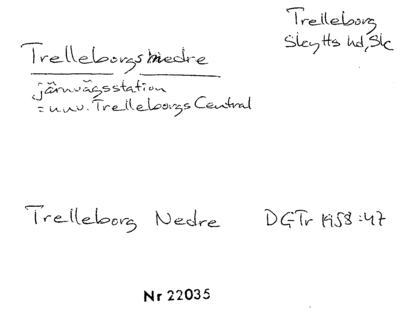 Trelleborg
Skytts hd, Sk
Trelleborgs nedre
järnvägsstation
= nuv. Trelleborgs Central
Trelleborg Nedre DGTr 1958:47
Nr 22035